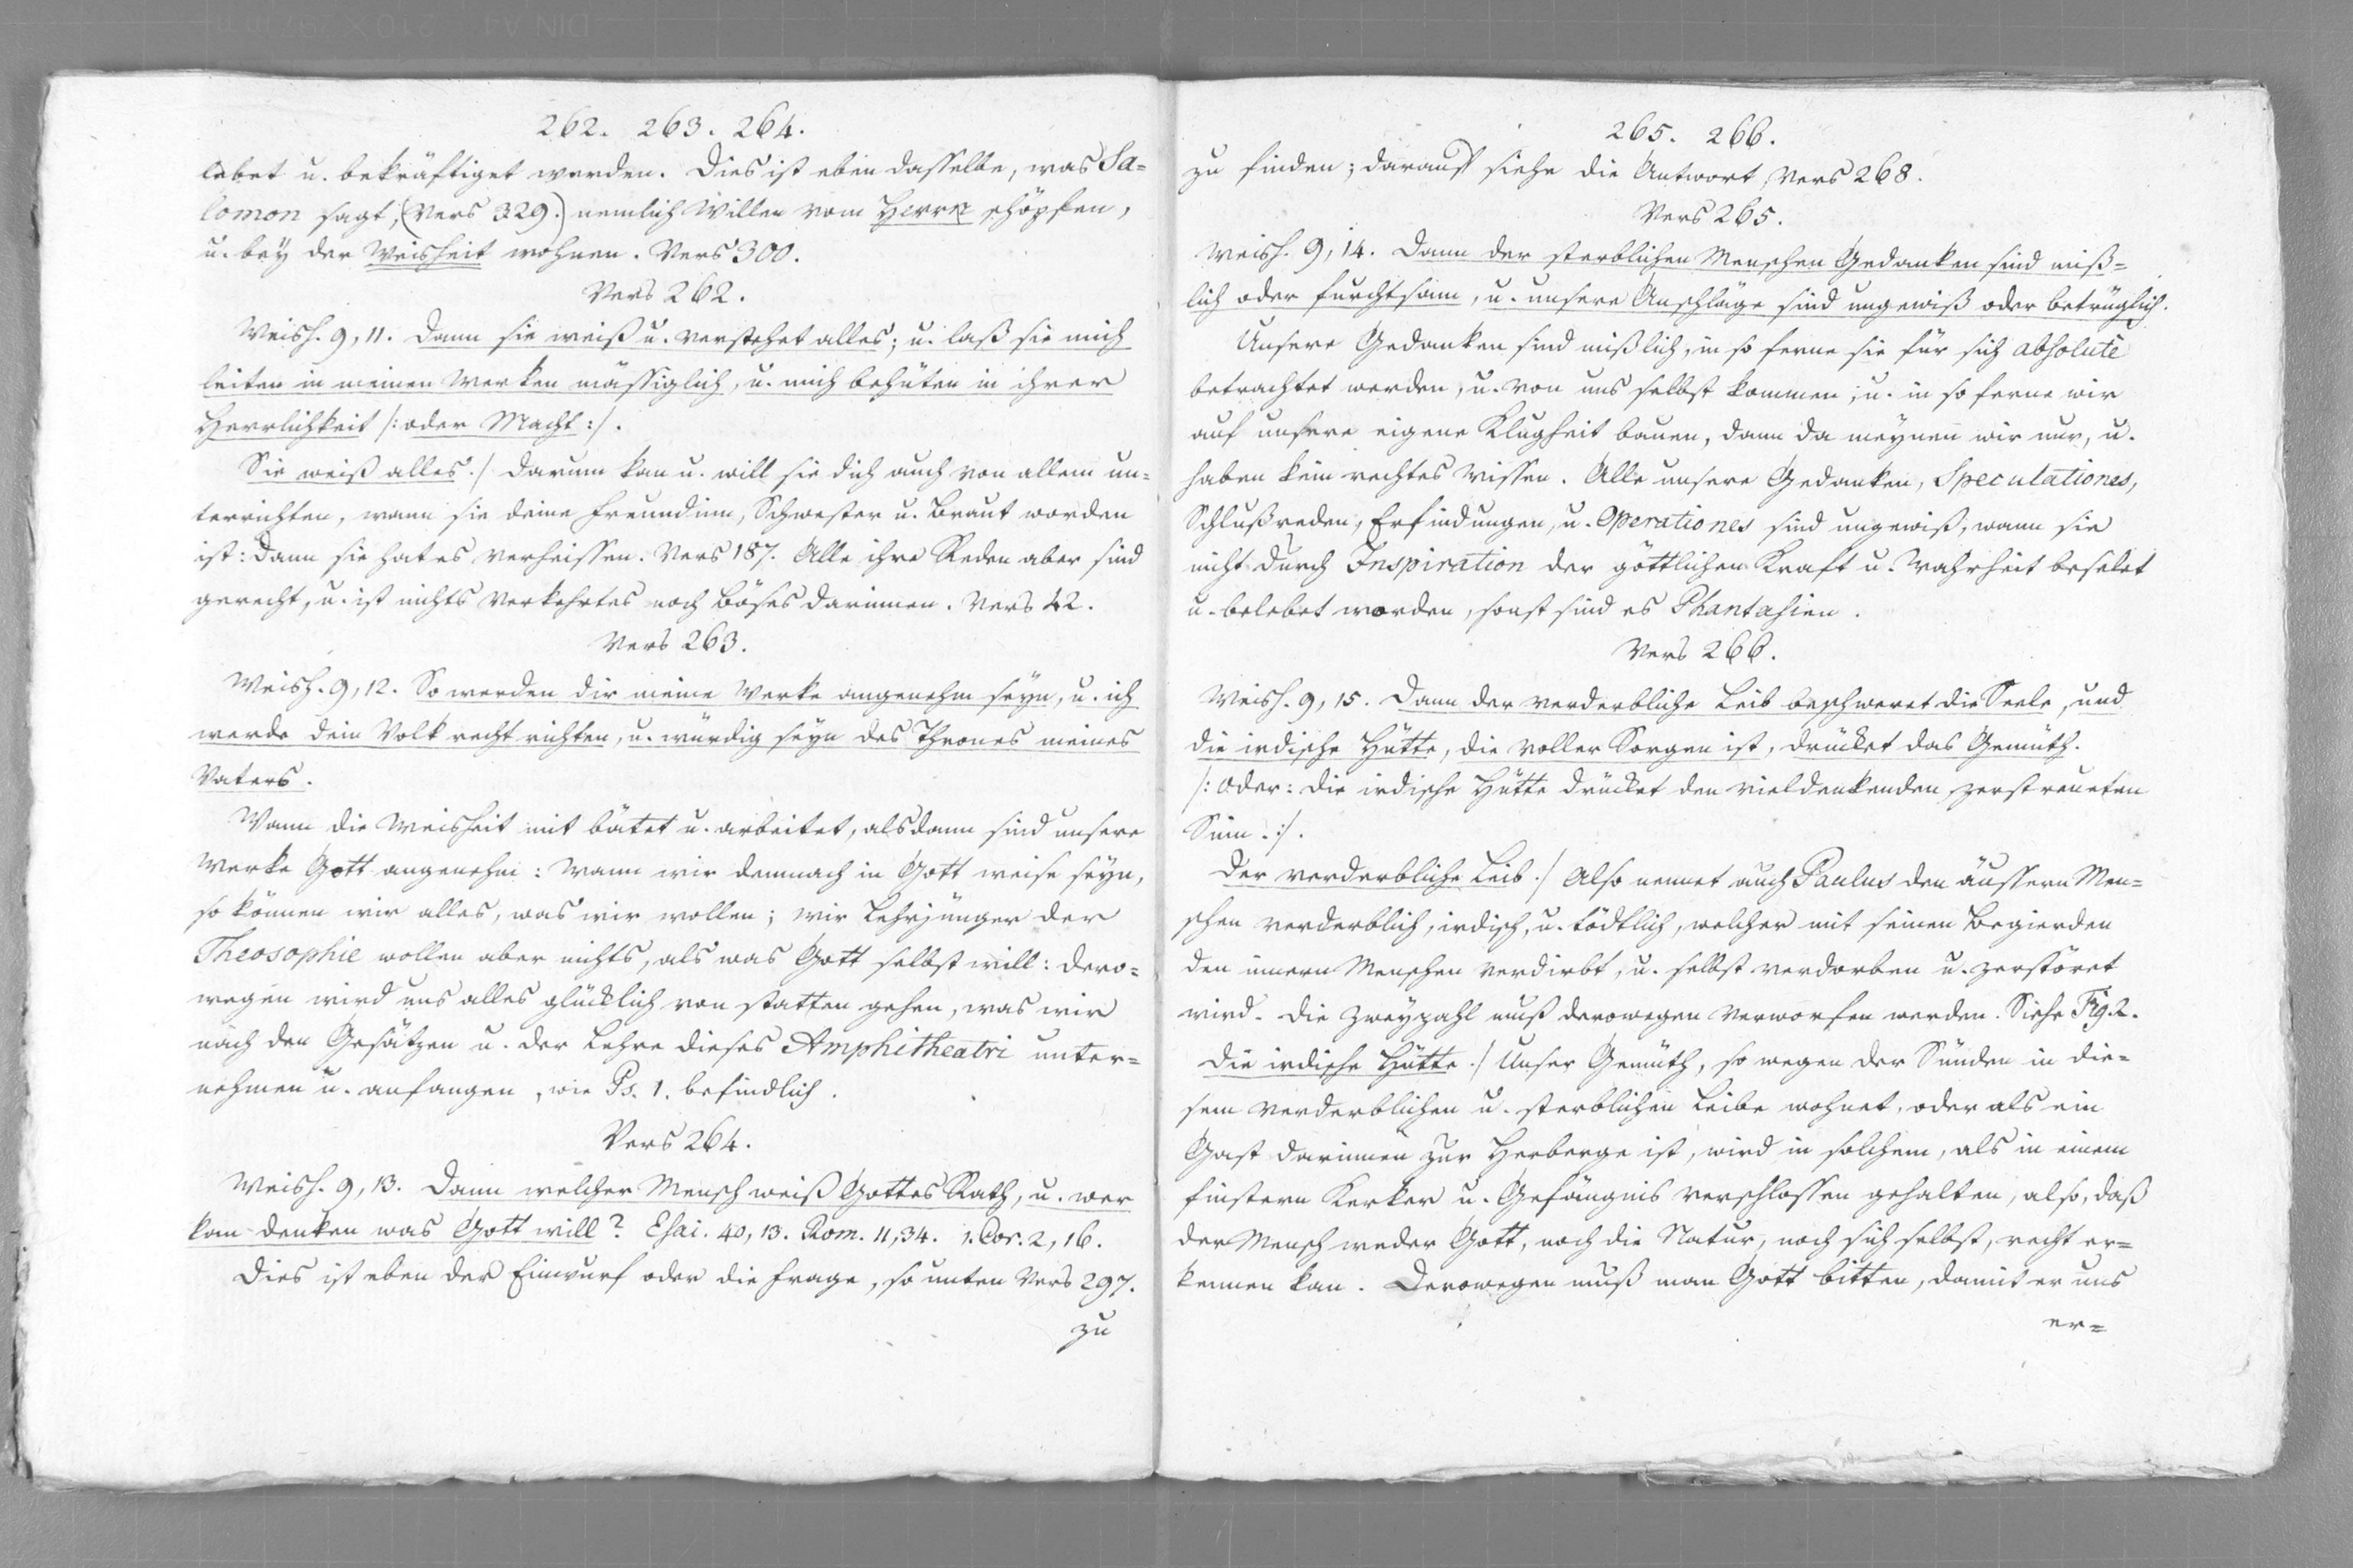 262. 263. 264.
lebet u. bekräftiget werden. Dies ist eben dasselbe, was Sa=
lomon sagt, (Vers 329.) nemlich Willen vom Herrn schöpfen,
u. bey der Weisheit wohnen. Vers 300.
Vers 262.
Weish. 9, 11. Dann sie weiß u. verstehet alles; u. laß sie mich
leiten in meinen Werken mässiglich, u. mich behüten in ihrer
Herrlichkeit /: oder Macht :/.
Sie weiß alles./ Darum kan u. will sie dich auch von allem un=
terrichten, wann sie deine Freundinn, Schwester u. Braut worden
ist: Dann sie hat es verheissen. Vers 187. Alle ihre Reden aber sind
gerecht, u. ist nichts verkehrtes noch böses darinnen. Vers 42.
Vers 263.
Weish. 9, 12. So werden dir meine Werke angenehm seyn, u. ich
werde dein Volk recht richten, u. würdig seyn des Thrones meines
Vaters.
Wann die Weisheit mit bätet u. arbeitet, alsdann sind unsere
Werke Gott angenehm: Wann wir demnach in Gott weise seyn,
so können wir alles, was wir wollen; wir Lehrjünger der
Theosophie wollen aber nichts, als was Gott selbst will: Dero=
wegen wird uns alles glücklich von statten gehen, was wir
nach den Gesätzen u. der Lehre dieses Amphitheatri unter=
nehmen u. anfangen, wie Ps. 1. befindlich.
Vers 264.
Weish. 9, 13. Dann welcher Mensch weiß Gottes Rath, u. wer
kan denken was Gott will? Esai. 40, 13. Rom. 11, 34. 1. Cor. 2, 16.
Dies ist eben der Einwurf oder die Frage, so unten Vers 297.
zu
265. 266.
zu finden; darauf siehe die Antwort, Vers 268.
Vers 265.
Weish. 9, 14. Dann der sterblichen Menschen Gedanken sind miß=
lich oder furchtsam, u. unsere Anschläge sind ungewiß oder betrüglich.
Unsere Gedanken sind mißlich, in so ferne sie für sich absolutè
betrachtet werden, u. von uns selbst kommen, u. in so ferne wir
auf unsere eigene Klugheit bauen, dann da meynen wir nur, u.
haben kein rechtes Wissen. Alle unsere Gedanken, Speculationes,
Schlußreden, Erfindungen, u. Operationes sind ungewiß, wann sie
nicht durch Inspiration der göttlichen Kraft u. Wahrheit beselet
u. belebet worden, sonst sind es Phantasien.
Vers 266.
Weish. 9, 15. Dann der verderbliche Leib beschweret die Seele, und
die irdische Hütte, die voller Sorgen ist, drücket das Gemüth.
/: Oder: Die irdische Hütte drücket den vieldenkenden zerstreueten
Sinn. :/.
Der verderbliche Leib./ Also nennet auch Paulus den äussern Men=
schen verderblich, irdisch, u. tödtlich, welcher mit seinen Begierden
den innern Menschen verdirbt, u. selbst verdorben u. zerstöret
wird. Die Zweyzahl muß derowegen verworfen werden. Siehe Fig. 2.
Die irdische Hütte./ Unser Gemüth, so wegen der Sünden in die=
sem verderblichen u. sterblichen Leibe wohnet, oder als ein
Gast darinnen zur Herberge ist, wird in solchem, als in einem
finstern Kerker u. Gefängnis verschlossen gehalten, also, daß
der Mensch weder Gott, noch die Natur, noch sich selbst, recht er=
kennen kan. Derowegen muß man Gott bitten, damit er uns
er=